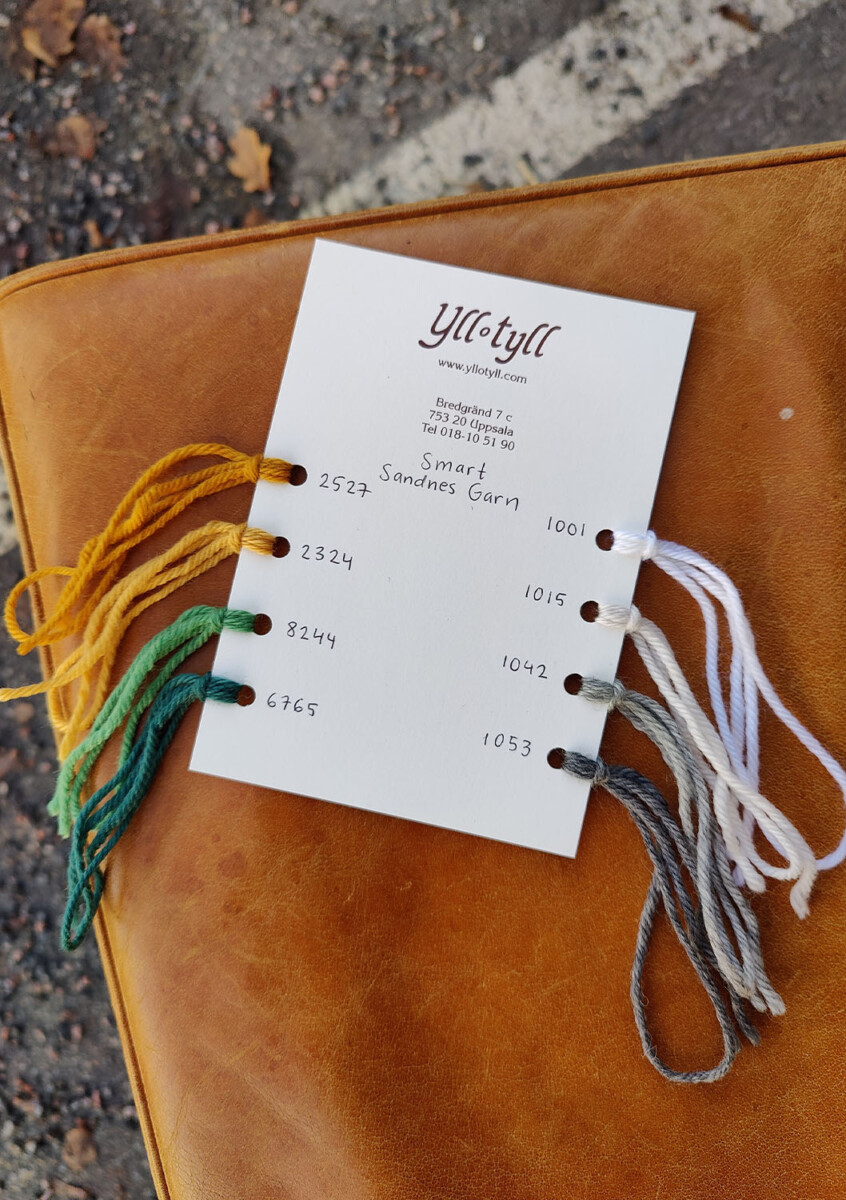 Yll o tyll
www.yllotyll.com
Bredgränd 7 c
753 20 Uppsala
Tel 018-10 51 90
Smart
Sandnes Garn
2527
2324
8244
6765
1001
1015
1042
1053